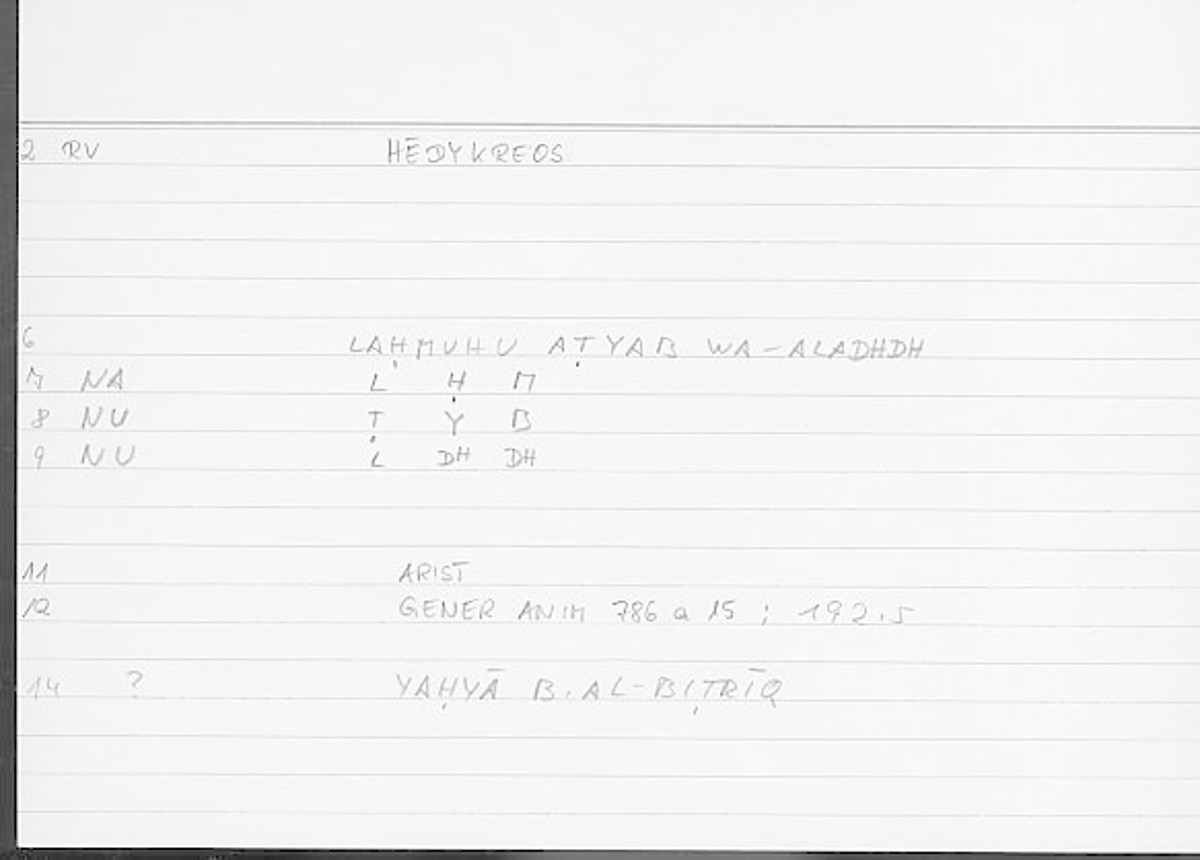 2 RV HĒDYKREOS
6 LAḤMUHU AṬYAB WA-ALADHDH
7 NA L Ḥ M
8 NU Ṭ Y B
9 NU L DH DH
11 ARIST
12 GENER ANIM 786 a 15 ; 192.5
14 ? YAḤYĀ B. AL-BIṬRĪQ